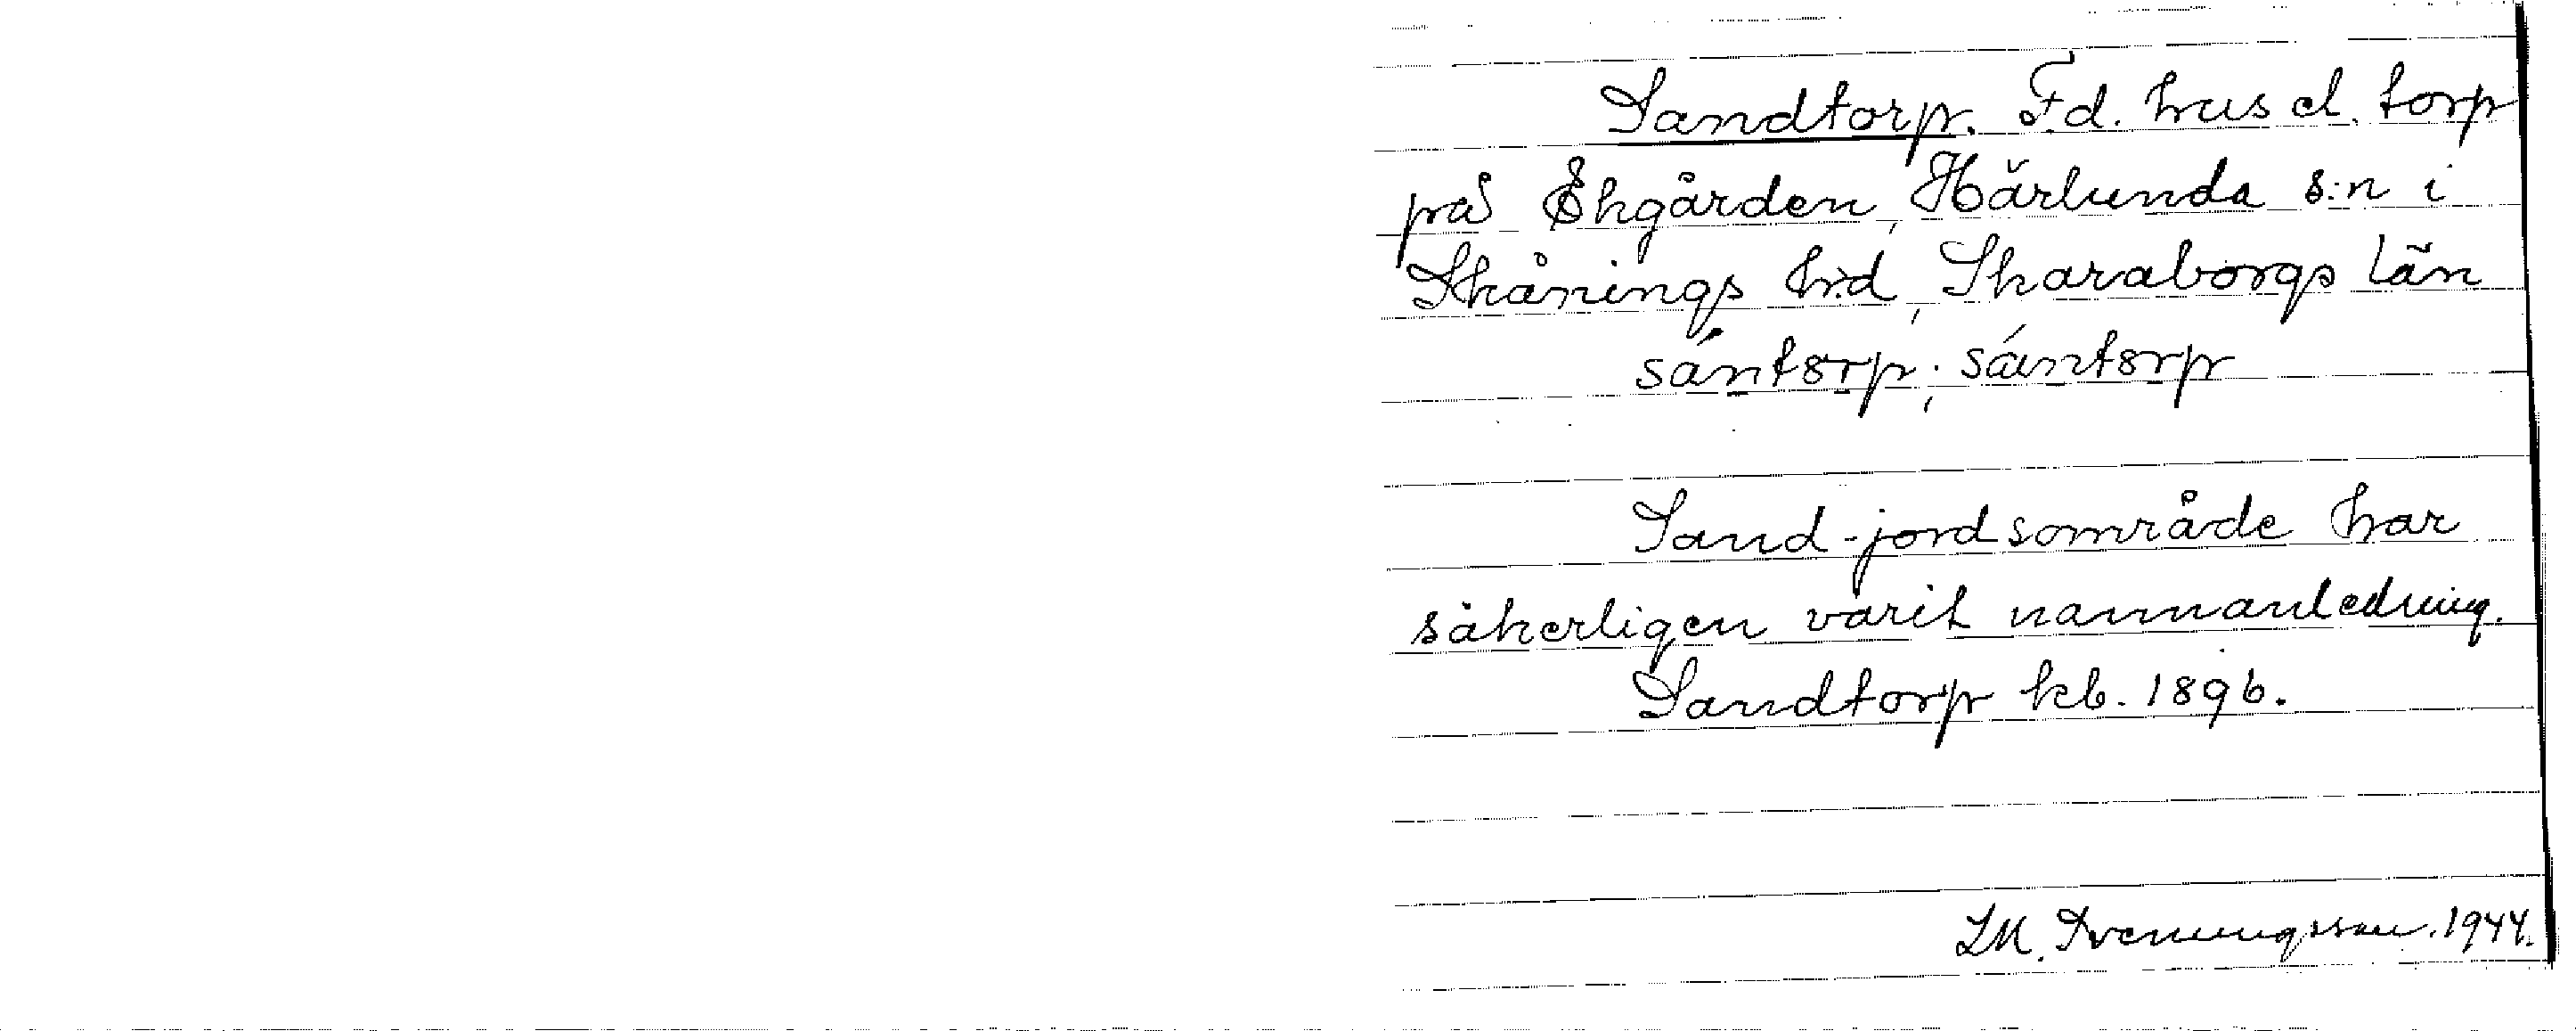 Sandtorp. F.d. hus el. torp
på Ekgården, Härlunda s:n i
Skånings h:d, Skaraborgs län
sántorp; sántorp
Sand-jordsområde har
säkerligen varit namnanledning.
Sandtorp kb. 1896.
LM. Svenungsson. 1944.